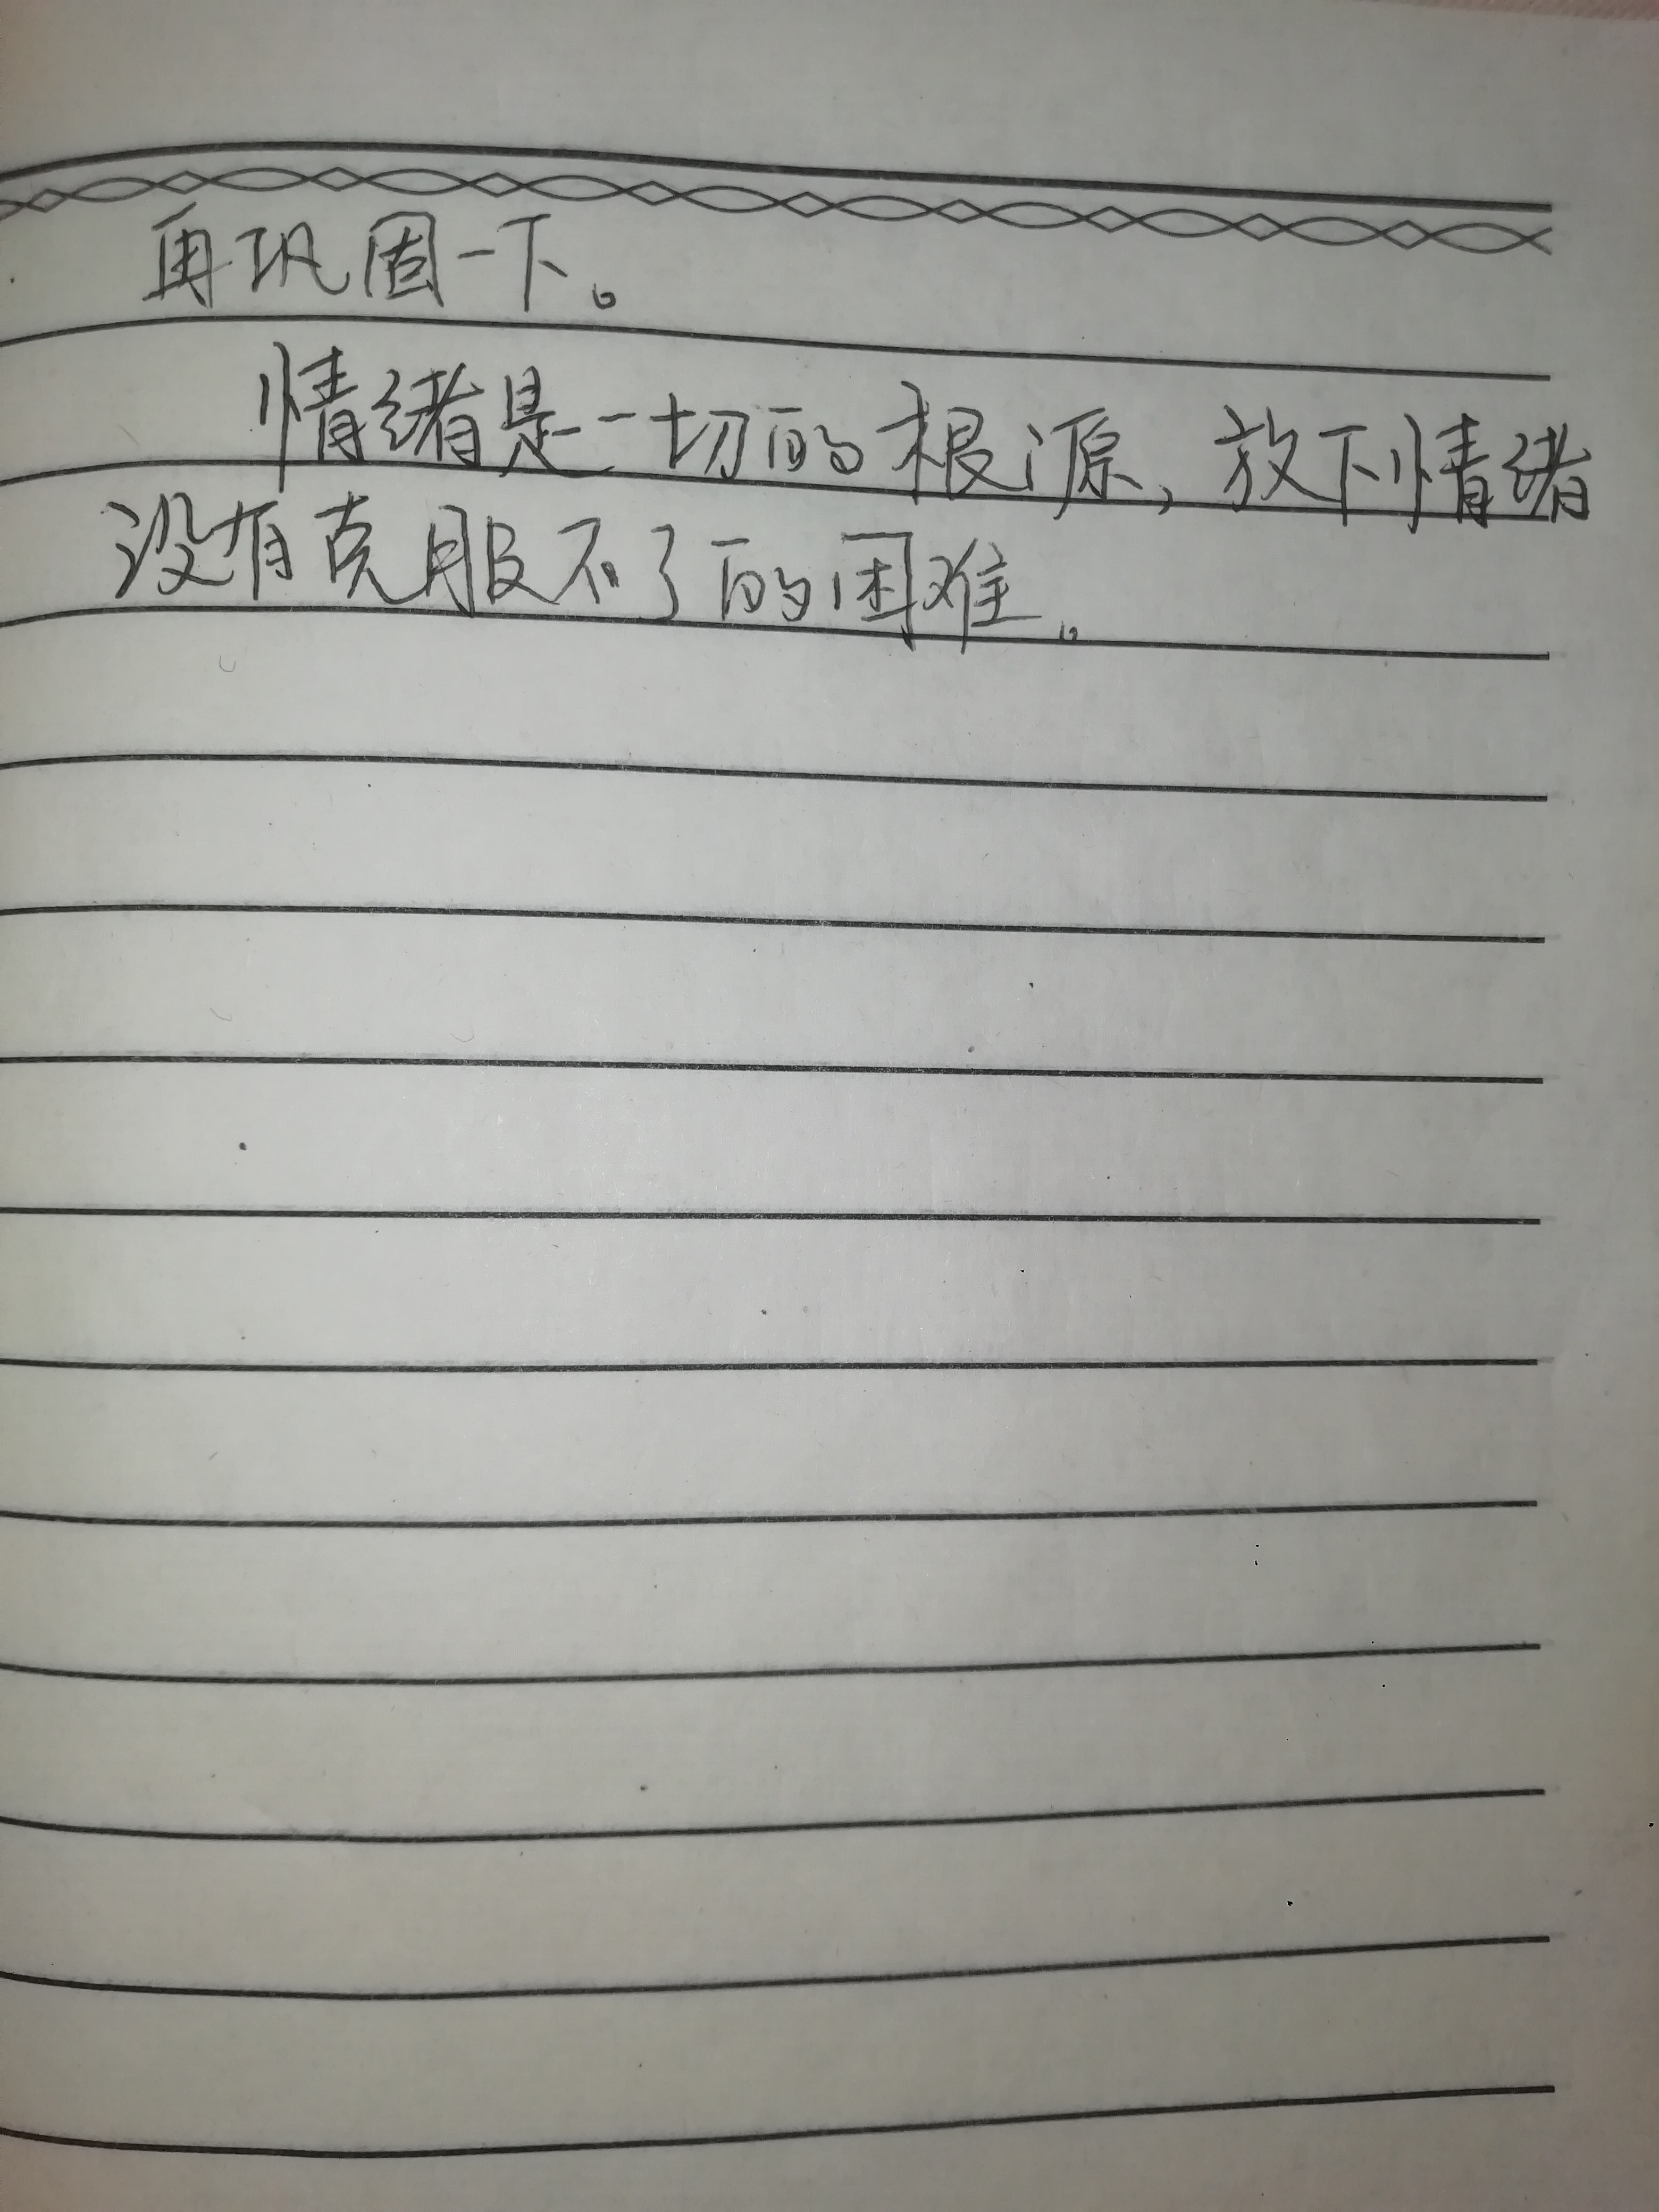 再巩固一下。
情绪是一切的根源，放下情绪
没有克服不了的困难。